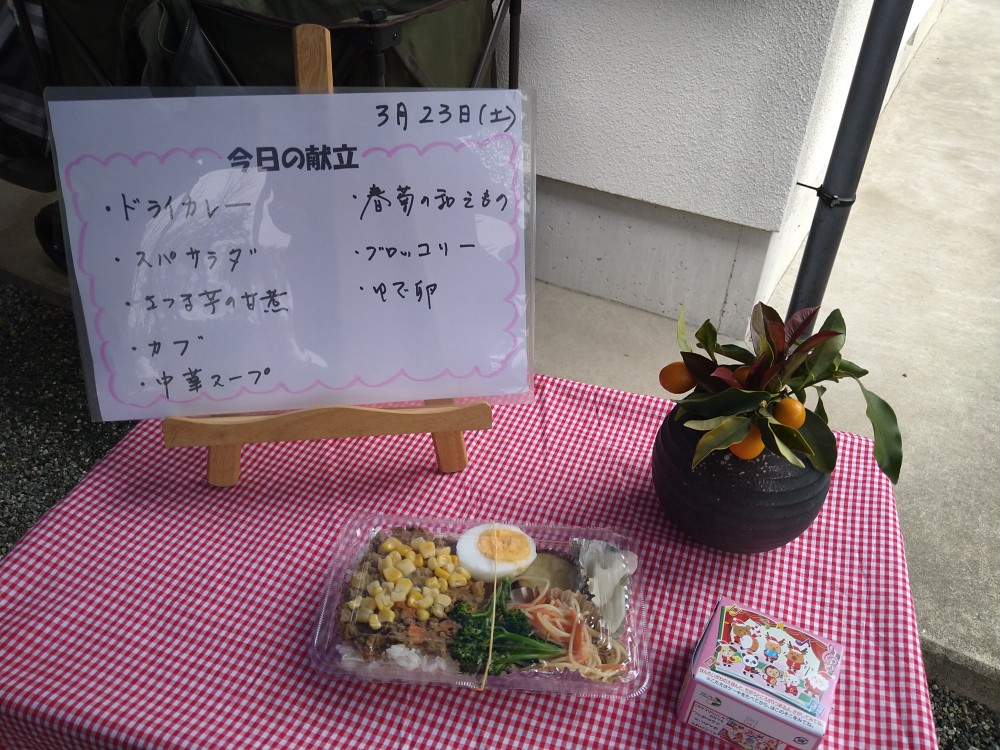 3月23日(土)
今日の献立
・ドライカレー
・スパサラダ
・さつま芋の甘煮
・カブ
・中華スープ
・春菊の和えもの
・ブロッコリー
・ゆで卵